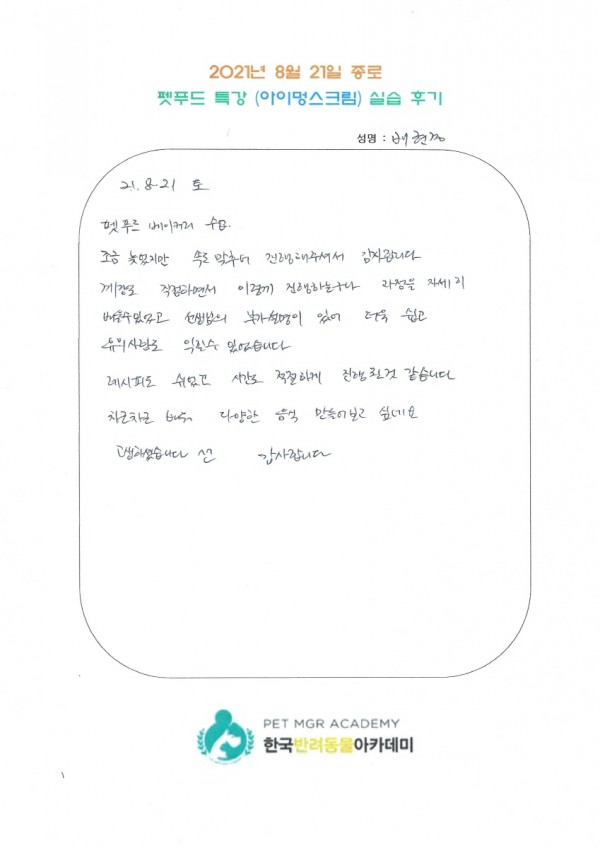 2021년 8월 21일 종로
펫푸드 특강 (아이멍스크림) 실습 후기
성명 : 배현정
21. 8. 21 토
펫푸드 베이커리 수업.
조금 늦었지만 속도 맞추어 진행해주셔서 감사합니다
직접하면서 이렇게 진행하는구나 과정을 자세히
배울수있었고 선생님의 부가설명이 있어 더욱 쉽고
유의사항도 익힐수 있었습니다
레시피도 쉬웠고 시간도 적절하게 진행된것 같습니다
차근차근 배워 다양한 음식 만들어보고 싶네요
고생하셨습니다 감사합니다
PET MGR ACADEMY
한국반려동물아카데미